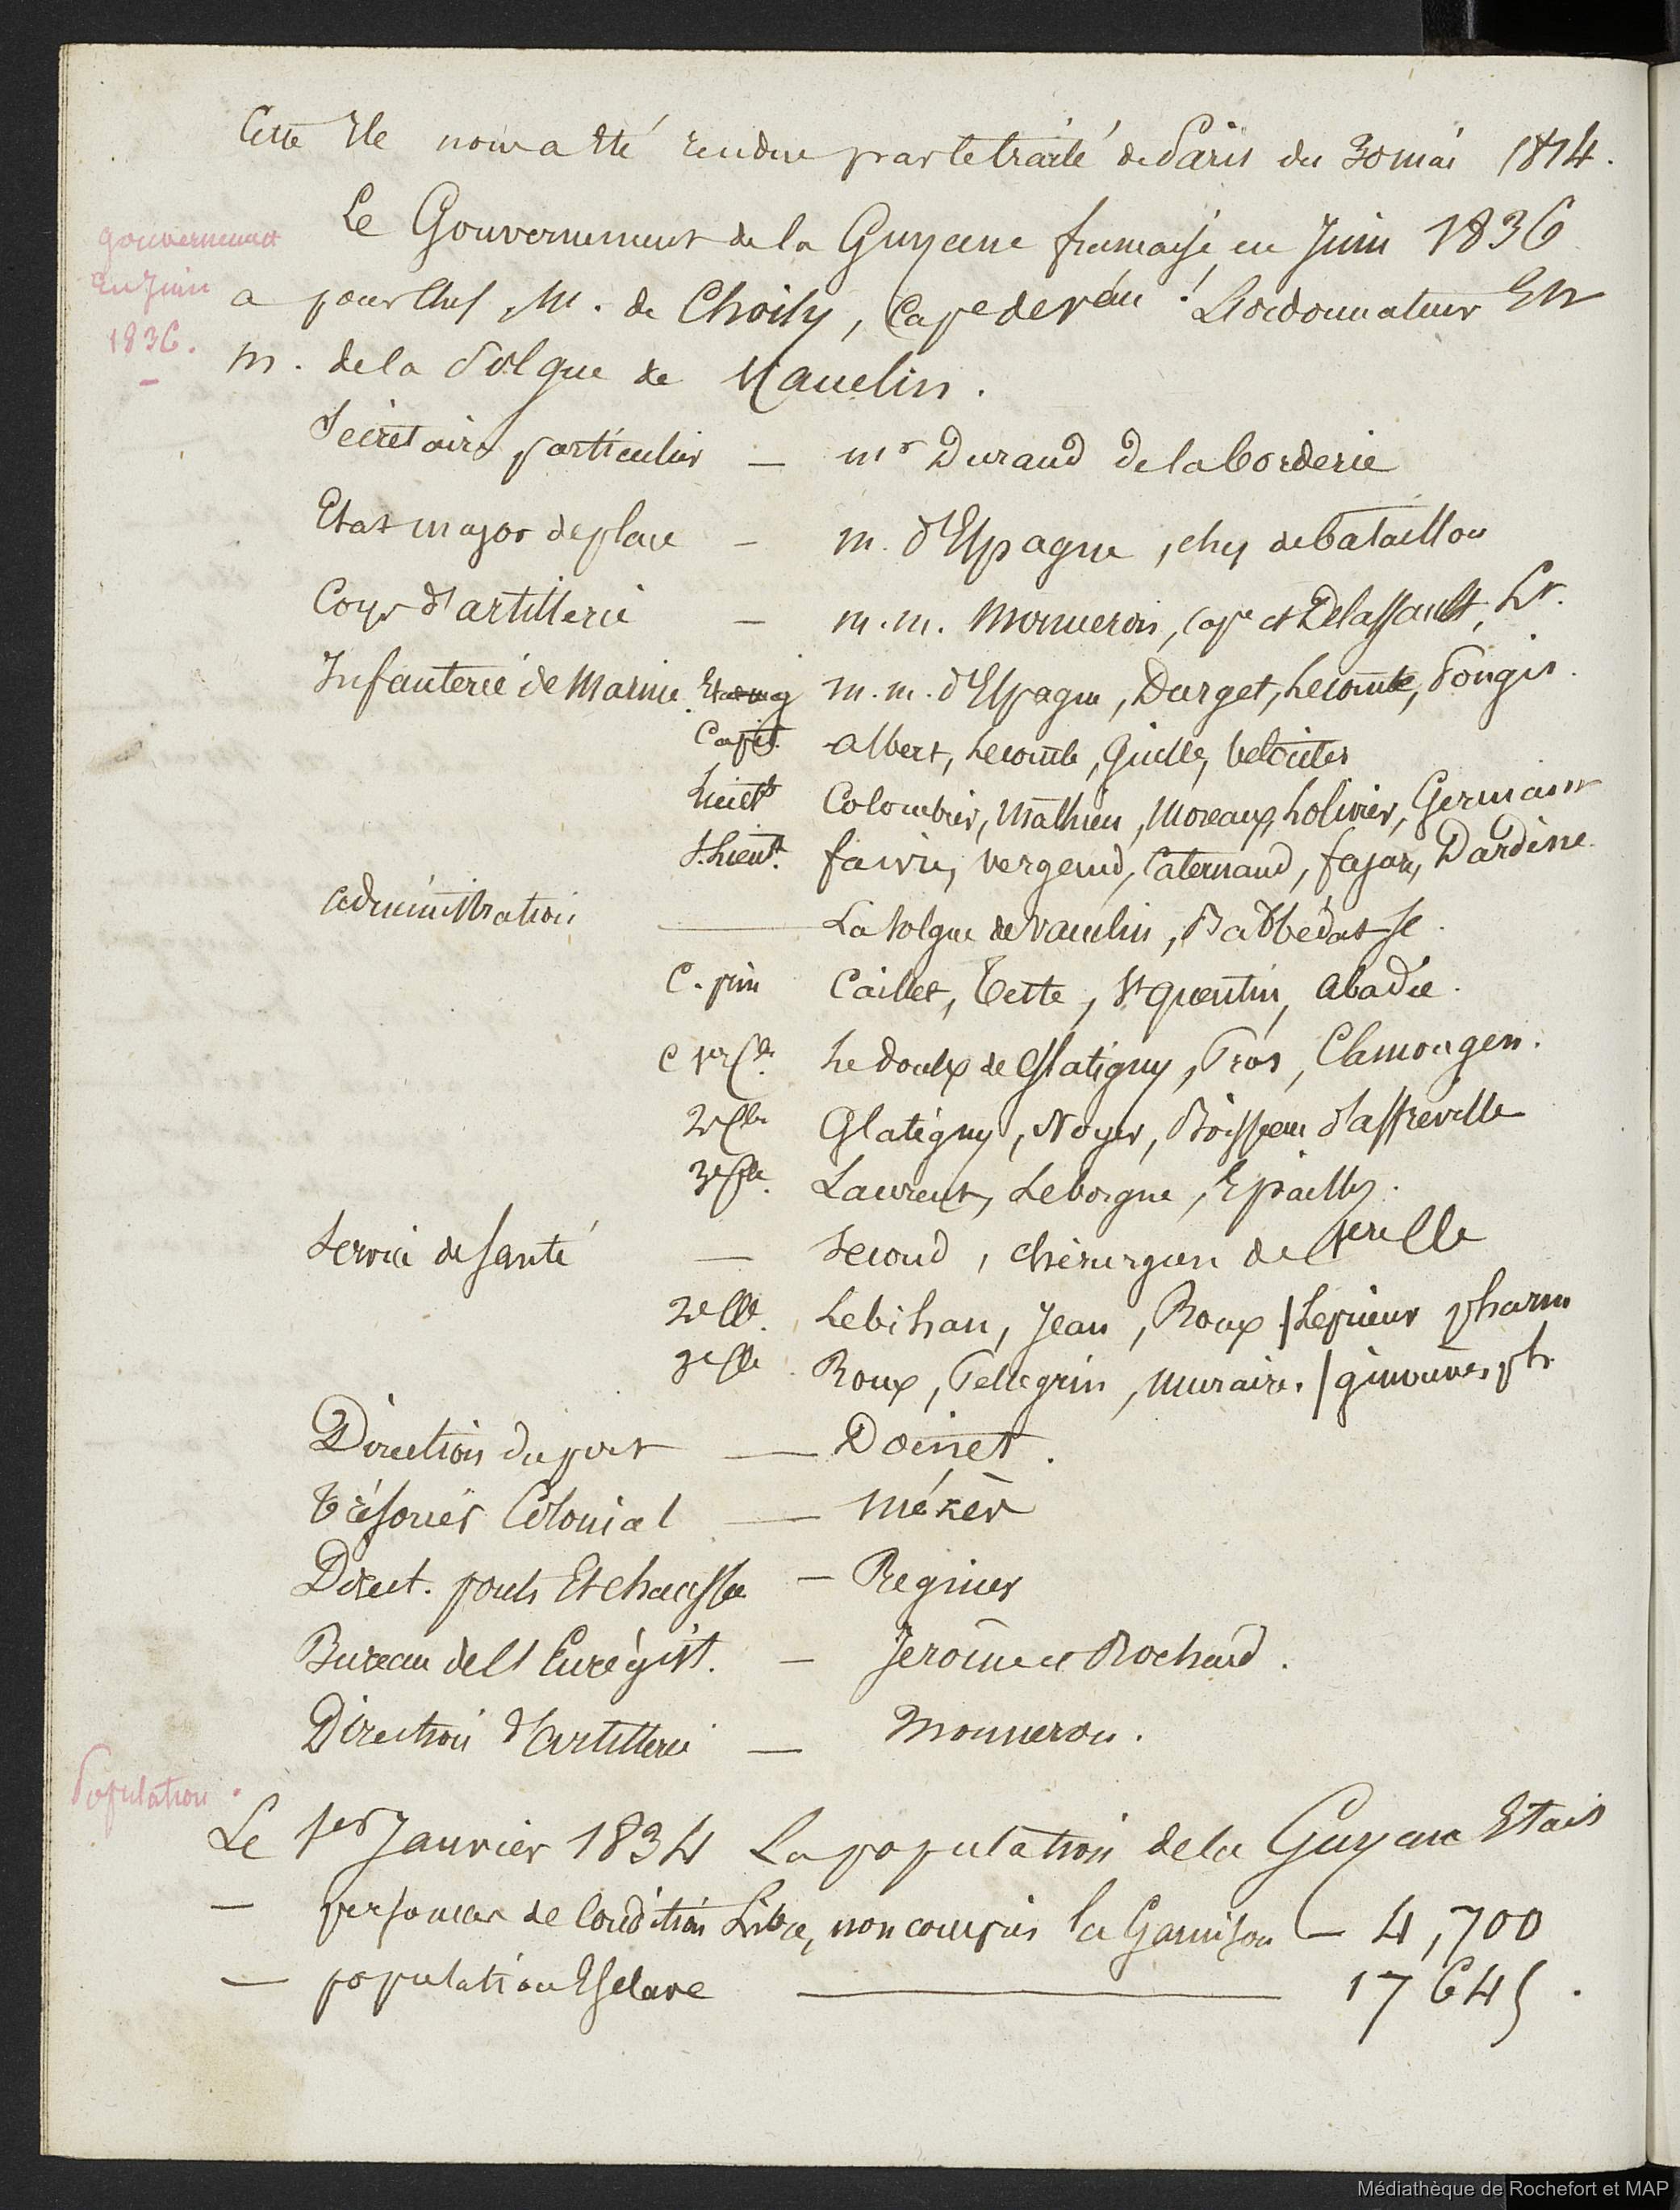 Cette Ile nous a Eté rendue par le traité de Paris du 30 mai 1814.
gouvernement
en Juin
1836.
Le Gouvernement de la Guyane française, en Juin 1836
a pour Chef M. de Choisy, Cap de Veau. L'ordonnateur Est
m. de la Solgue de Vauclin.
Secrétaire particulier — mr Durand de laborderie
Etat major de place — m. d'Espagne, chef de bataillon
Corps d'artillerie — m.m. Monneron, Cape et Delassault, Lt.
Infanterie de Marine. Etat maj m.m. d'Espagne, Darget, Lecomte, Pongis.
Capit. Albert, Lecomte, Guille,
Lieutt Colombier, Mathieu, Moreaux, Lolivier, Germain
S. Lieut. faivre, vergeaud, Caternaud, fajon, Dardenne
administration — La Solgue de Vauclin,
C. pin Caillet, Tette, St Quentin, Abadie.
C 1re Cle Le doulx de Glatigny, Pros, Clamorgen.
2e Cle Glatigny, Noyer, Boisseau d'affreville
3e Cle. Laurent, Leborgne, Epailly.
Service de Santé — Second, chirurgien de 1ere Clle
2e Clle. Lebihan, Jean, Roux / Leprieur pharm
3e Cle Roux, Pellegrin, Muraire. / ph
Direction du port — Doinet.
Trésorier Colonial — Mézès
Direct. ponts Et chaussée — Regnier
Bureau de l'Enrégist. — Jerome et Rochard.
Direction d'artillerie — Monneron.
Population.
Le 1er Janvier 1834 La population de la Guyane Etait
— personnes de Condition Libre, non compris la Garnison — 4,700
— population Esclave — 17645.
Médiathèque de Rochefort et MAP